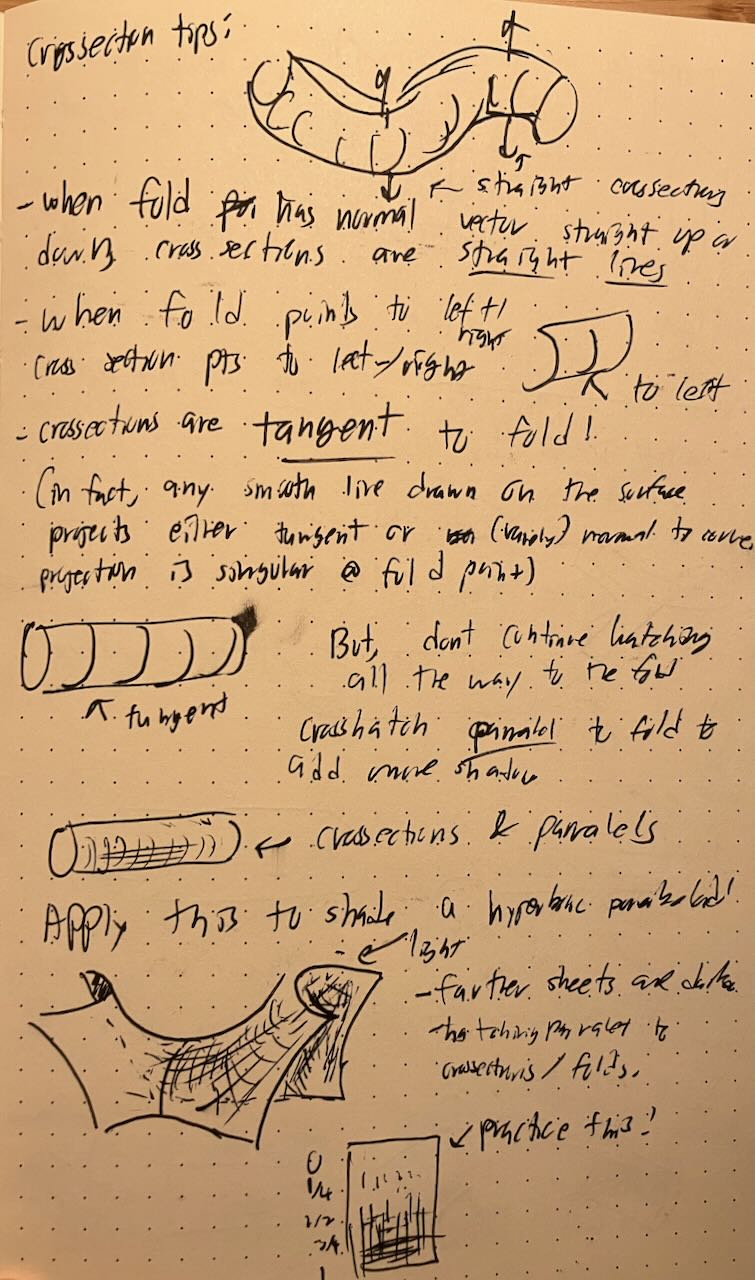 Crossection tips:
← straight crossections
- when fold has normal vector straight up or
down, cross sections are straight lines
- When fold points to left/
right
cross section pts to left/right
↖ to left
- crossections are tangent to fold!
(in fact, any smooth line drawn on the surface
projects either tangent or (rarely) normal to curve,
projection is singular @ fold point)
But, dont continue hatching
all the way to the fold
↖ tangent
Crosshatch parralel to fold to
add more shadow
← crossections & parralels
Apply this to shade a hyperbolic paraboloid!
light
- farther sheets are darker
- hatching parralel to
crossections / folds.
↙ practice this!
0
1/4
2/2
3/4
1